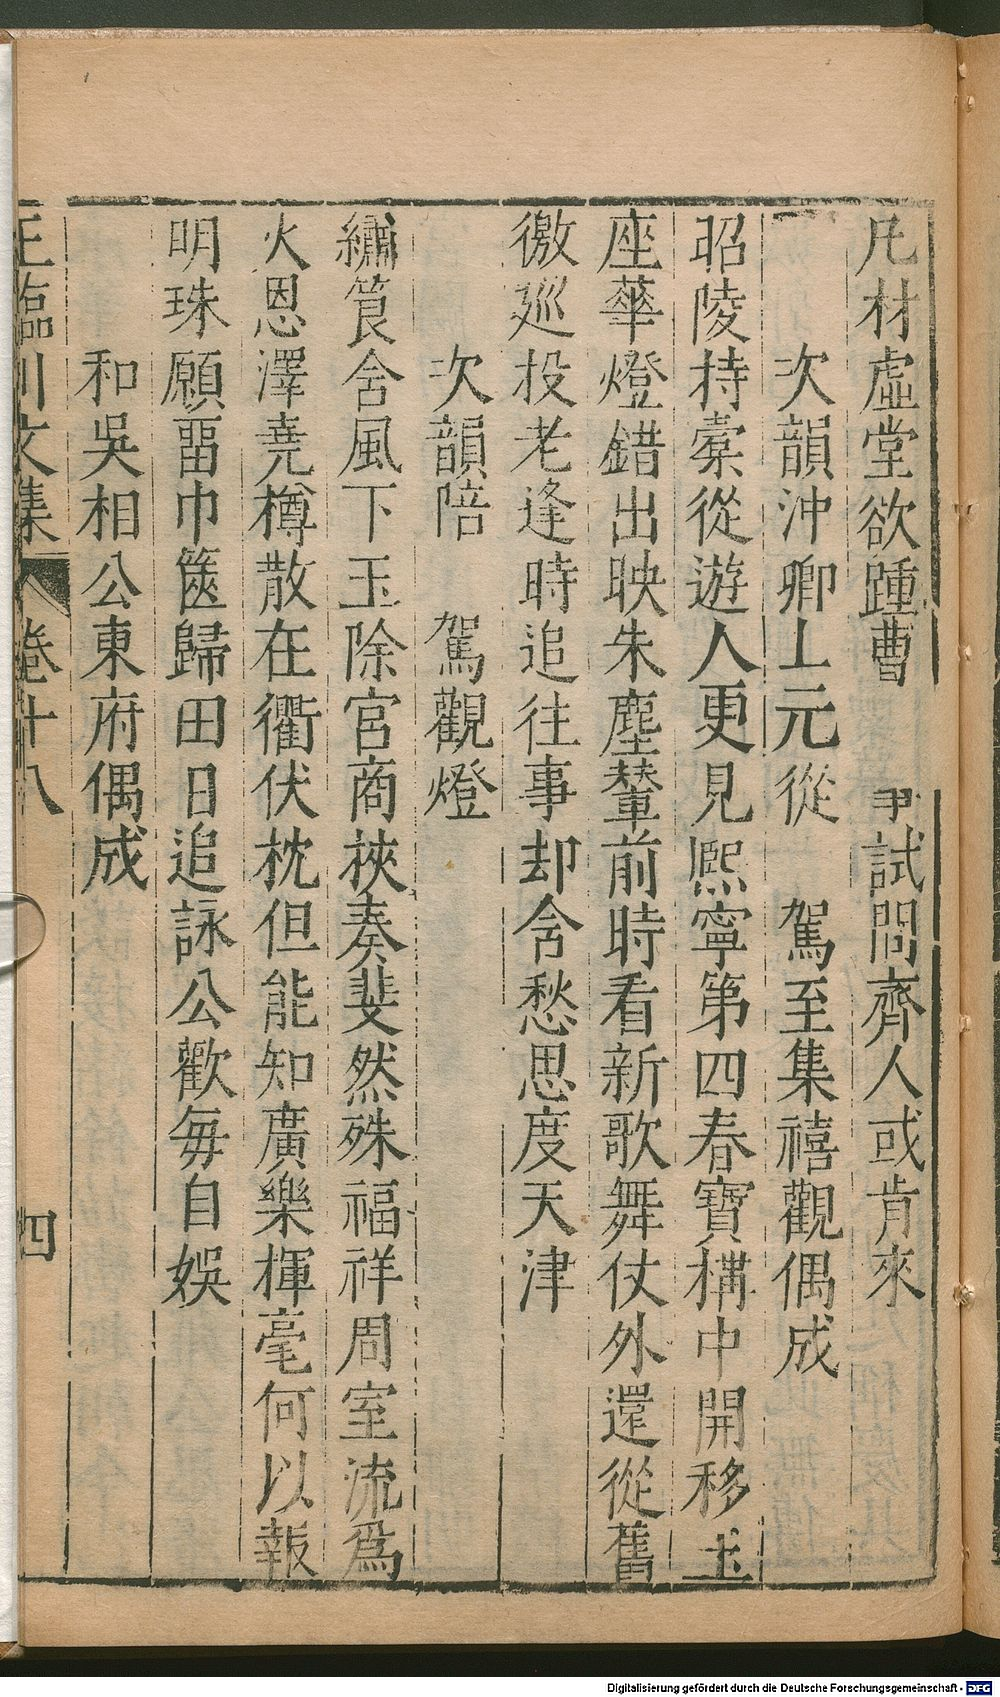 凡材虛堂欲踵曹 尹試問齊人或肯來
次韻沖卿上元從 駕至集禧觀偶成
昭陵持橐從遊人更見熈寧第四春寶構中開移玉
座華燈錯出映朱塵輦前時看新歌舞仗外還從舊
徼巡投老逢時追往事却含愁思度天津
次韻陪 駕觀燈
繡筤含風下玉除宮商挾奏斐然殊福祥周室流爲
火恩澤堯樽散在衢伏枕但能知廣樂揮毫何以報
明珠願畱巾篋歸田日追詠公歡每自娛
和吳相公東府偶成
王臨川文集 卷十八 四
Digitalisierung gefördert durch die Deutsche Forschungsgemeinschaft - DFG